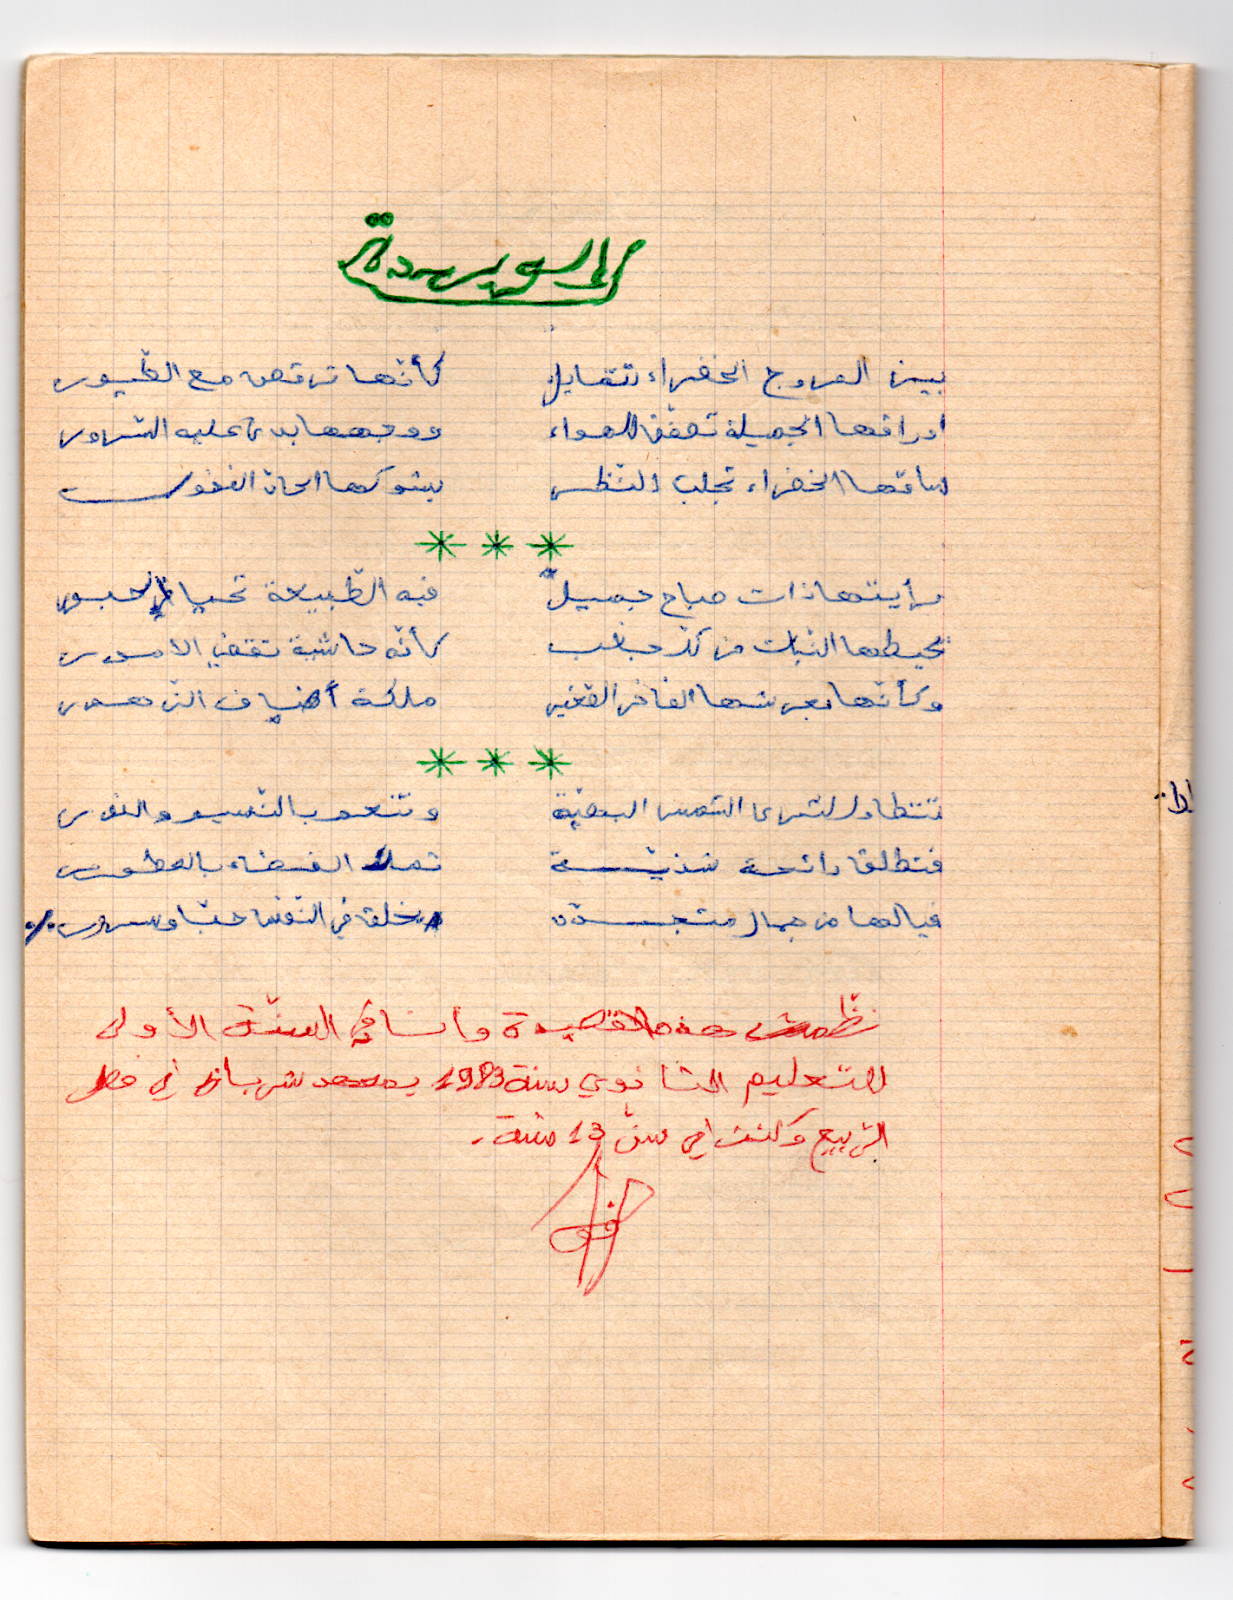 الوردة
بين المروج الخضراء تتمايل كأنّها ترقص مع الطّيور
اوراقها الجميلة تصفّق للهواء ووجهها بدى عليه السّرور
ساقها الخضراء تجلب النّظر بشوكها الحادّ
رأيتها ذات صباح جميل فيه الطّبيعة تحيا في حبور
تحيطها النّباتات من كلّ جانب كأنّه حاشية تقضي الامور
وكأنّها بعرشها الفاخر الصّغير ملكة أضياف الزّهور
تتطاول لترى الشمس البهيّة وتنعم بالنّسيم والنّور
فتطلق رائحة شذيّة تملأ الفضاء بالعطور
فيالها من جمال متجدّد يخلق في النّفس حبّا وسرور ٪
نظّمت هذه القصيدة وأنا في السنة الأولى
للتعليم الثانوي سنة 1983 بمعهد خزندار في فصل
الرّبيع وكنت في سنّ 13 سنة.